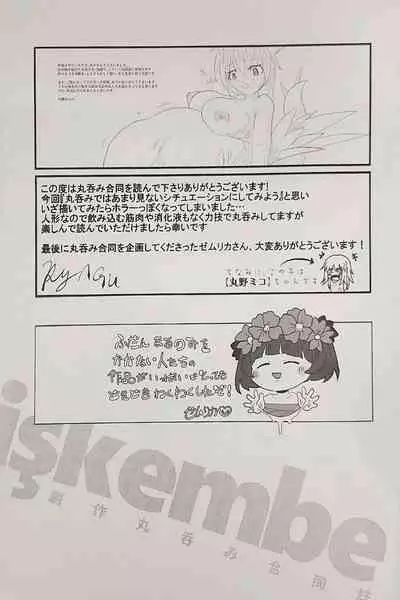 この度は丸呑み合同を読んで下さりありがとうございます!
今回『丸呑みではあまり見ないシチュエーションにしてみよう』と思い
いざ描いてみたらホラーっぽくなってしまいました…
人形なので飲み込む筋肉や消化液もなく力技で丸呑みしてますが
楽しんで読んでいただけましたら幸いです
最後に丸呑み合同を企画してくださったゼムリカさん、大変ありがとうございます!
ちなみに、この子は
【丸野ミコ】ちゃんです
ふだん まるのみを
かかない人たちの
作品がいっぱいになって
どきどきわくわくしたぞ!
ゼムリカ
işkembe
創作丸呑み合同誌